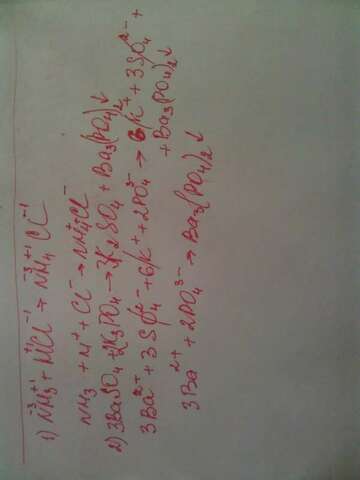 1) N⁻³H₃⁺¹ + H⁺Cl⁻¹ → N⁻³H₄⁺¹ Cl⁻¹
NH₃ + H⁺ + Cl⁻ → NH₄⁺Cl⁻
2) 3BaSO₄ + 2K₃PO₄ → 3K₂SO₄ + Ba₃(PO₄)₂↓
3Ba²⁺ + 3SO₄²⁻ + 6K⁺ + 2PO₄³⁻ → 6K⁺ + 3SO₄²⁻ +
+ Ba₃(PO₄)₂↓
3Ba²⁺ + 2PO₄³⁻ → Ba₃(PO₄)₂↓